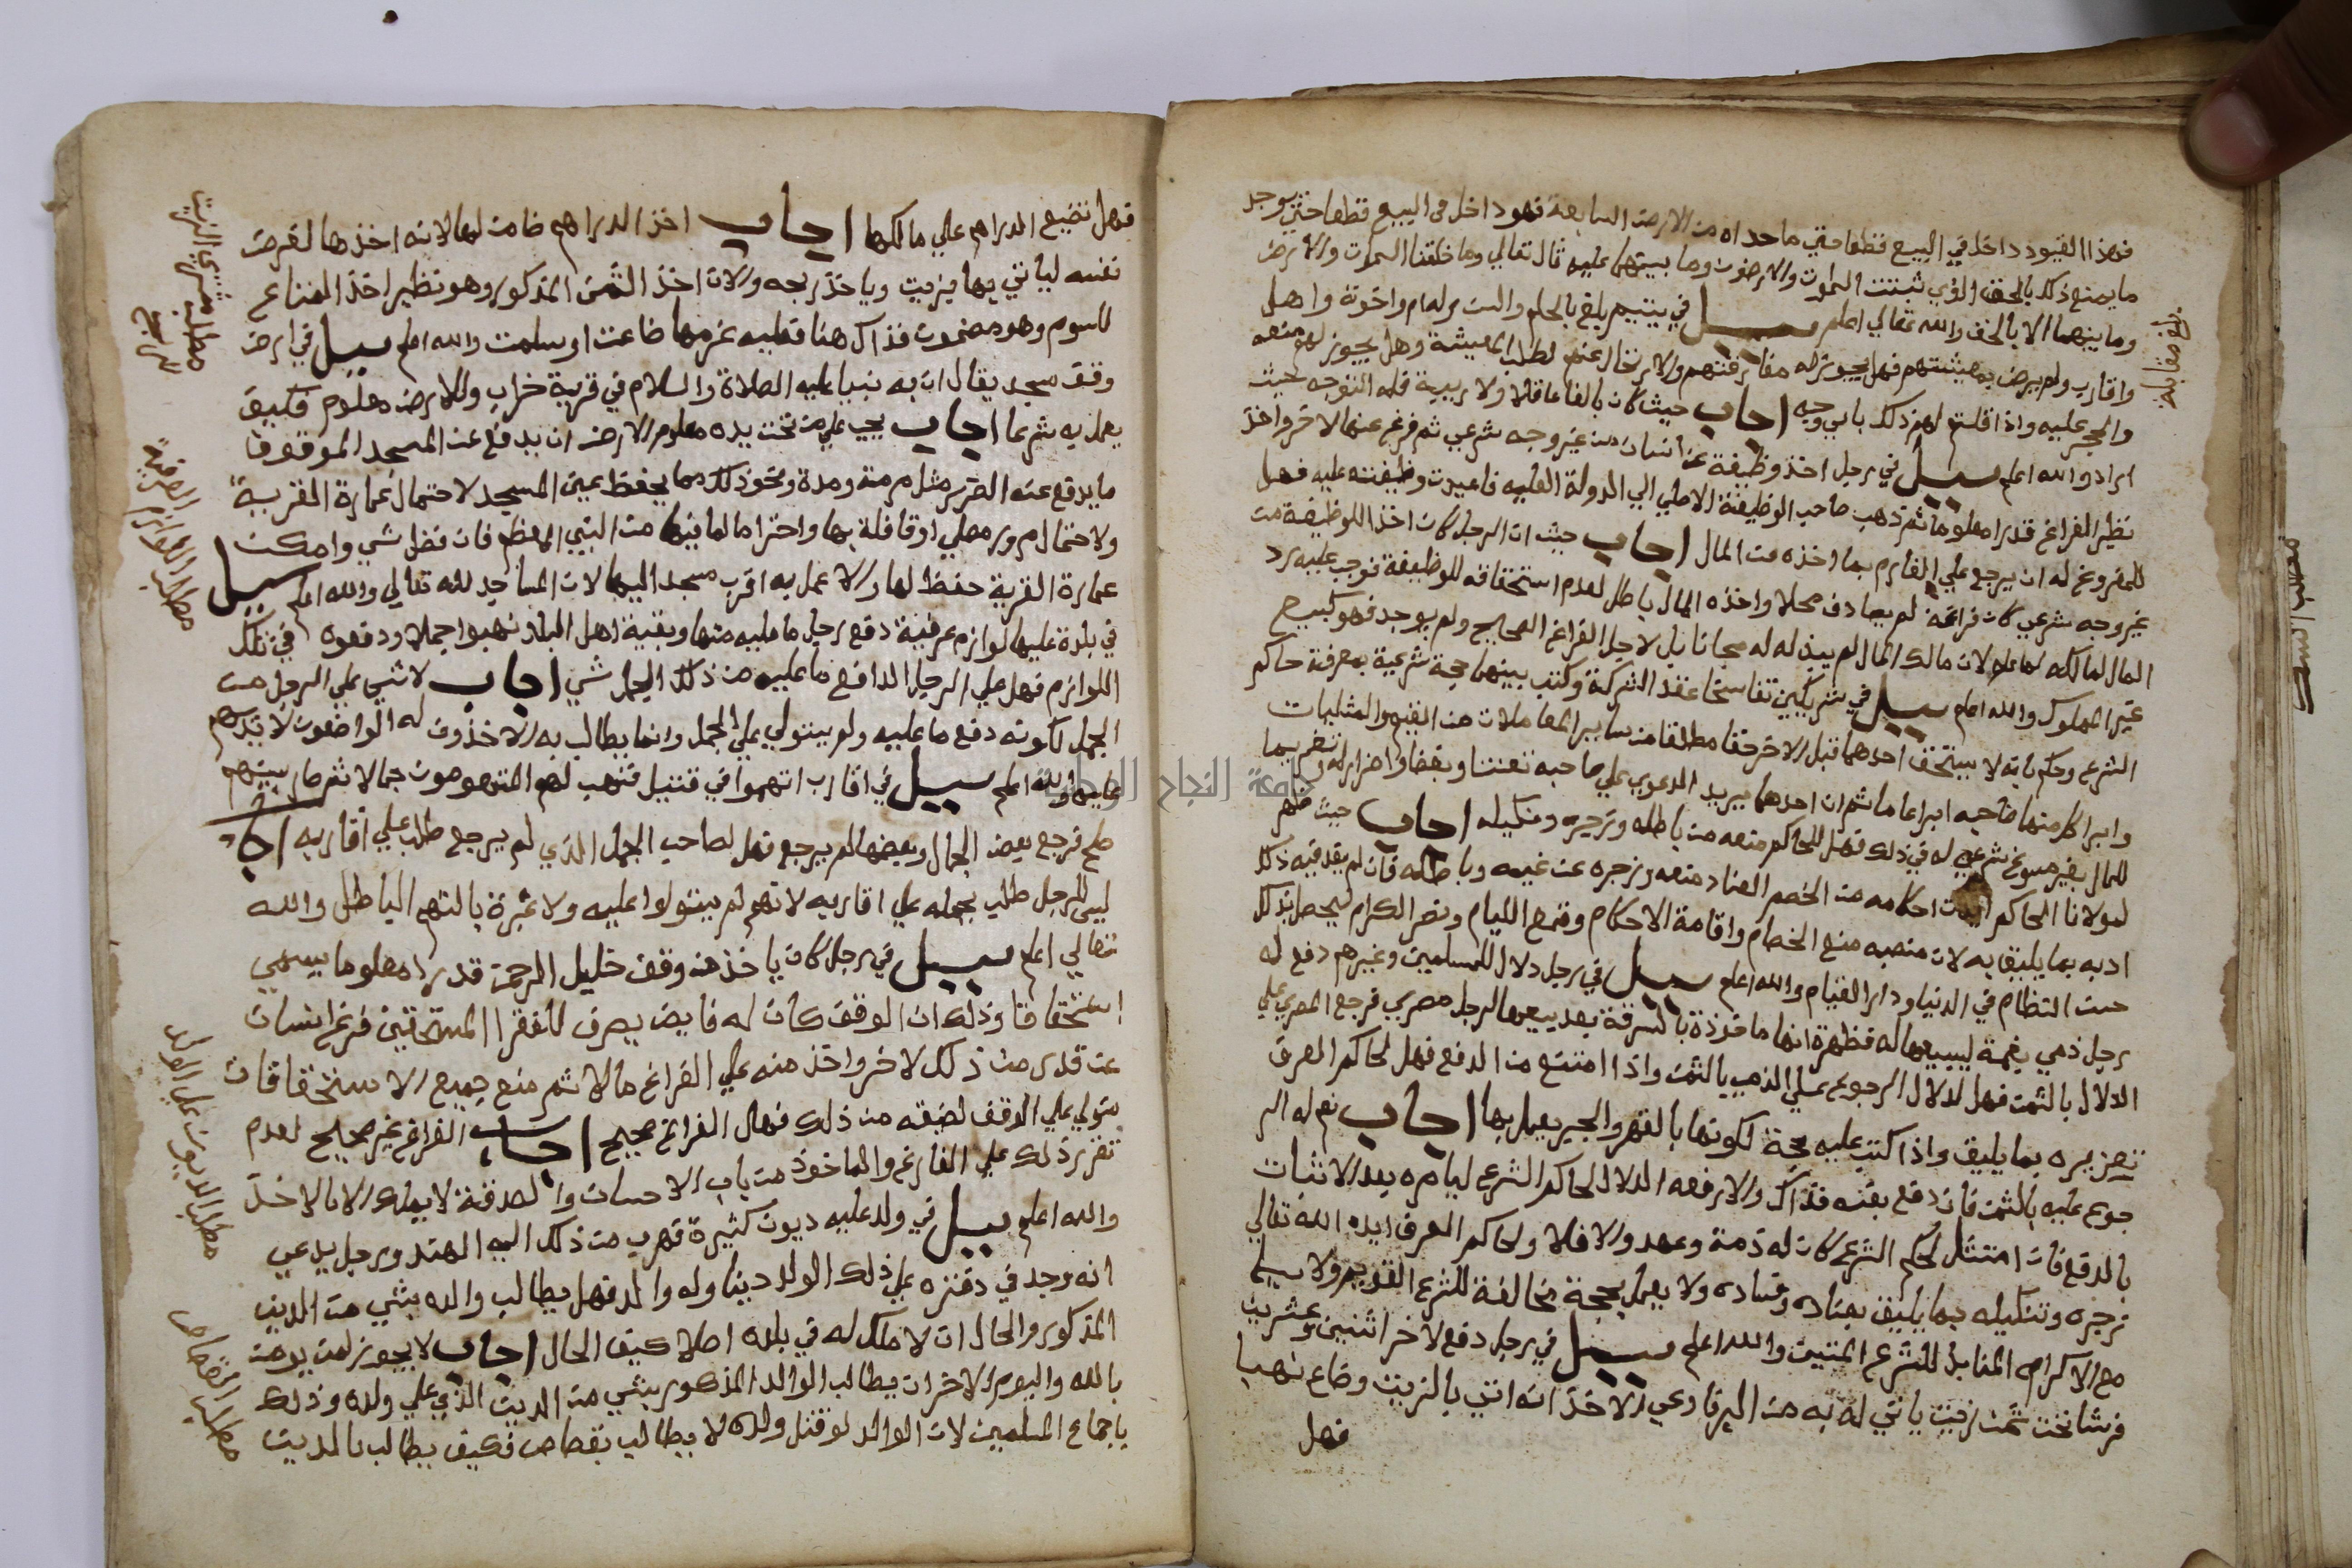 فهذا القيود داخل في البيع قطعا حتي ما حداه من الارض السابعة فهو داخل في البيع قطعا حتي يوجد
ما يمنع ذلك بالحق الذي ثبتت السموات والارضون وما بينهما عليه قال تعالي وما خلقنا السموات والارض
وما بينهما الا بالحق والله تعالي اعلم سيل في يتيم بلغ بالحلم والسن وله ام واخوة واهل
واقارب ولم يرض بمعيشتهم فهل يجوز له مفارقتهم والارتحال عنهم لطلب المعيشة وهل يجوز لهم منعه
والحجر عليه واذا قلتم لهم ذلك باي وجه اجاب حيث كان بالغا عاقلا ولا ريبة فله التوجه حيث
اراد والله اعلم سيل في رجل اخذ وظيفة عن انسان من غير وجه شرعي ثم فرغ عنها لاخر واخذ
نظير الفراغ قدرا معلوما ثم ذهب صاحب الوظيفة الاصلي الي الدولة العلية فاعيدت وظيفته عليه فهل
للمفروغ له ان يرجع علي الفارغ بما اخذه من المال اجاب حيث ان الرجل كان اخذ الوظيفة من
غير وجه شرعي كان فراغه لم يصادف محلا واخذه المال باطل لعدم استحقاقه للوظيفة فوجب عليه رد
المال لمالكه لان مالك المال لم يبذله له مجانا بل لاجل الفراغ الصحيح ولم يوجد فهو كبيع
غير المملوك والله اعلم سيل في شريكين تفاسخا عقد الشركة وكتب بينهما حجة شرعية بمعرفة حاكم
الشرع وحكم بانه لا يستحق احدهما قبل الاخر حقا مطلقا من ساير المعاملات من القيم والمثليات
وابرا كل منهما صاحبه ابرا عاما ثم ان احدهما يريد الدعوي علي صاحبه تعنتا وبغضا واضرارا له وتغريما
للمال بغير مسوغ شرعي له في ذلك فهل للحاكم منعه من باطله وزجره وتنكيله اجاب حيث ظهر
لمولانا الحاكم احكامه من الخصم العناد منعه وزجره عن غيه وباطله فان لم يفد فيه ذلك
ادبه بما يليق به لان منصبه منع الخصام واقامة الاحكام وقمع الليام ونصر الكرام ليحصل بذلك
حسن النظام في الدنيا ودار القيام والله اعلم سيل في رجل دلال للمسلمين وغيرهم دفع له
رجل ذمي ليبيعها له فظهرة انها ماخوذة بالسرقة بعد بيعها لرجل مصري فرجع المصري علي
الدلال بالثمن فهل للدلال الرجوع علي الذمي بالثمن واذا امتنع من الدفع فهل لحاكم العرف
تعزيره بما يليق واذا كتب عليه حجة لكونها بالقهر والجبر يعمل بها اجاب نعم له الر
جوع عليه بالثمن فان دفع بفنه فذاك والا رفعه الدلال لحاكم الشرع ليامره بعد الاثبات
بالدفع فان امتثل لحكم الشرع كان له ذمة وعهد والا فلا ولحاكم العرف ايده الله تعالي
زجره وتنكيله بما يليق بعناده وفساده ولا يعمل بحجة مخالفة للشرع القديم ولا سيما
مع الاكراه المنابذ للشرع المتين والله اعلم سيل في رجل دفع لاخر اثنين وعشرين
قرشا تحت ثمن زيت ياتي له به من الير فادعي الاخذ انه اتي بالزيت وضاع نهبا
فهل
بلغ مقابلة
فهل تضيع الدراهم علي مالكها اجاب اخذ الدراهم ضامن لها لانه اخذها لغرض
نفسه لياتي بها بزيت وياخذ ربحه والان اخذ الثمن المذكور وهو نظير اخذ المتاع
للسوم وهو مضمون فذاك هنا فعليه غرمها ضاعت او سلمت والله اعلم سيل في ارض
وقف مسجد يقال ان به نبيا عليه الصلاة والسلام في قرية خراب وللارض معلوم فكيف
يعمل به شرعا اجاب يجب علي من تحت يده معلوم الارض ان يدفع عن المسجد الموقوف
ما يدفع عنه الضرر مثل مرمة ومدة ونحو ذلك مما يحفظ عين المسجد لاحتمال عمارة القرية
ولاحتمال مرور مصلي او قافلة بها واحتراما لما فيها من النبي المعظم فان فضل شي وامكن
عمارة القرية حفظ لها والا عمل به اقرب مسجد اليها لان المساجد لله تعالي والله اعلم سيل
في بلدة عليها لوازم عرفية دفع رجل ما عليه منها وبقية اهل البلد نهبوا جملا ودفعوه في تلك
اللوازم فهل علي الرجل الدافع ما عليه من ذلك الجمل شي اجاب لا شي علي الرجل من
الجمل لكونه دفع ما عليه ولم يستولي علي الجمل وانما يطالب به الاخذون له الواضعون لايديهم
عليه والله اعلم سيل في اقارب اتهموا في قتيل فنهب لهم المتهومون جمالا ثم صار بينهم
صلح فرجع بعض الجمال وبعضها لم يرجع فهل لصاحب الجمل الذي لم يرجع طلب علي اقاربه اجاب
ليس للرجل طلب بجمله علي اقاربه لانهم لم يستولوا عليه ولا عبرة بالتهم الباطل والله
تعالي اعلم سيل في رجل كان ياخذ من وقف خليل الرحمن قدرا معلوما يسمي
استحقاقا وذلك ان الوقف كان له فايض يصرف للفقرا المستحقين فرغ انسان
عن قدر من ذلك لاخر واخذ منه علي الفراغ مالا ثم منع جميع الاستحقاقات
متولي علي الوقف لضيقه من ذلك فهل الفراغ صحيح اجاب الفراغ غير صحيح لعدم
تقرير ذلك علي الفارغ والماخوذ من باب الاحسان والصدقة لا يملك الا بالاخذ
والله اعلم سيل في ولد عليه ديون كثيرة فهرب من ذلك الي الهند ورجل يدعي
انه وجد في دفتره علي ذلك الولد دينا وله والد فهل يطالب والده بشي من الدين
المذكور والحال ان لا ملك له في بلده اصلا كيف الحال اجاب لا يجوز لمن يومن
بالله واليوم الاخر ان يطالب الوالد المذكور بشي من الدين الذي علي ولده وذلك
باجماع المسلمين لان الوالد لو قتل ولده لا يطالب بقصاص فكيف يطالب بالدين
مطلب اللوازم العرفية
مطلب الديون علي الولد
مطلب القصاص
جامعة النجاح الوطنية